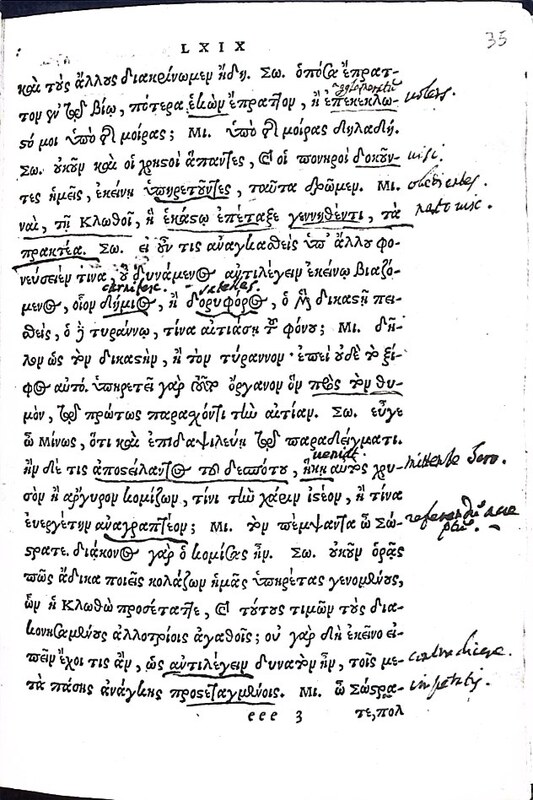 35
LXIX
καὶ τοὺς ἄλλους διακρίνωμεν ἤδη. Σω. ὁπόσα ἔπρατ-
τον ἐν τῷ βίῳ, πότερα ἑκὼν ἔπραττον, ἢ ἐπεκέκλω-
στό μοι ὑπὸ τῆς μοίρας; Μι. ὑπὸ τῆς μοίρας δηλαδή.
Σω. οὐκοῦν καὶ οἱ χρηστοὶ ἅπαντες, καὶ οἱ πονηροὶ δοκοῦν-
τες ἡμεῖς, ἐκείνῃ ὑπηρετοῦντες, ταῦτα δρῶμεν. Μι.
ναὶ, τῇ Κλωθοῖ, ἣ ἑκάστῳ ἐπέταξε γεννηθέντι, τὰ
πρακτέα. Σω. εἰ οὖν τις ἀναγκασθεὶς ὑπ' ἄλλου φο-
νεύσειέν τινα, οὐ δυνάμενος ἀντιλέγειν ἐκείνῳ βιαζο-
μένῳ, οἷον δήμιος, ἢ δορυφόρος, ὁ μὲν δικαστῇ πει-
σθεὶς, ὁ δὲ τυράννῳ, τίνα αἰτιάσῃ τοῦ φόνου; Μι. δῆ-
λον ὡς τὸν δικαστὴν, ἢ τὸν τύραννον· ἐπεὶ οὐδὲ τὸ ξί-
φος αὐτό. ὑπηρετεῖ γὰρ τοῦτο ὄργανον ὂν πρὸς τὸν θυ-
μόν, τῷ πρώτως παρασχόντι τὴν αἰτίαν. Σω. εὖγε
ὦ Μίνως, ὅτι καὶ ἐπιδαψιλεύῃ τῷ παραδείγματι.
ἢν δέ τις ἀποστείλαντος τοῦ δεσπότου, ἥκῃ αὐτὸς χρυ-
σὸν ἢ ἄργυρον κομίζων, τίνι τὴν χάριν ἰστέον, ἢ τίνα
εὐεργέτην ἀναγραπτέον; Μι. τὸν πέμψαντα ὦ Σώ-
στρατε. διάκονος γὰρ ὁ κομίσας ἦν. Σω. οὐκοῦν ὁρᾷς
πῶς ἄδικα ποιεῖς κολάζων ἡμᾶς ὑπηρέτας γενομένους,
ὧν ἡ Κλωθὼ προσέταττε, καὶ τούτους τιμῶν τοὺς δια-
κονησαμένους ἀλλοτρίοις ἀγαθοῖς; οὐ γὰρ δὴ ἐκεῖνο εἰ-
πεῖν ἔχοι τις ἂν, ὡς ἀντιλέγειν δυνατὸν ἦν, τοῖς με-
τὰ πάσης ἀνάγκης προστεταγμένοις. Μι. ὦ Σώστρα-
eee 3 τε, πολ
nolens.
nisi.
obedientes
nato
carnifex.
satelles.
veniat
mittente
contradicere.